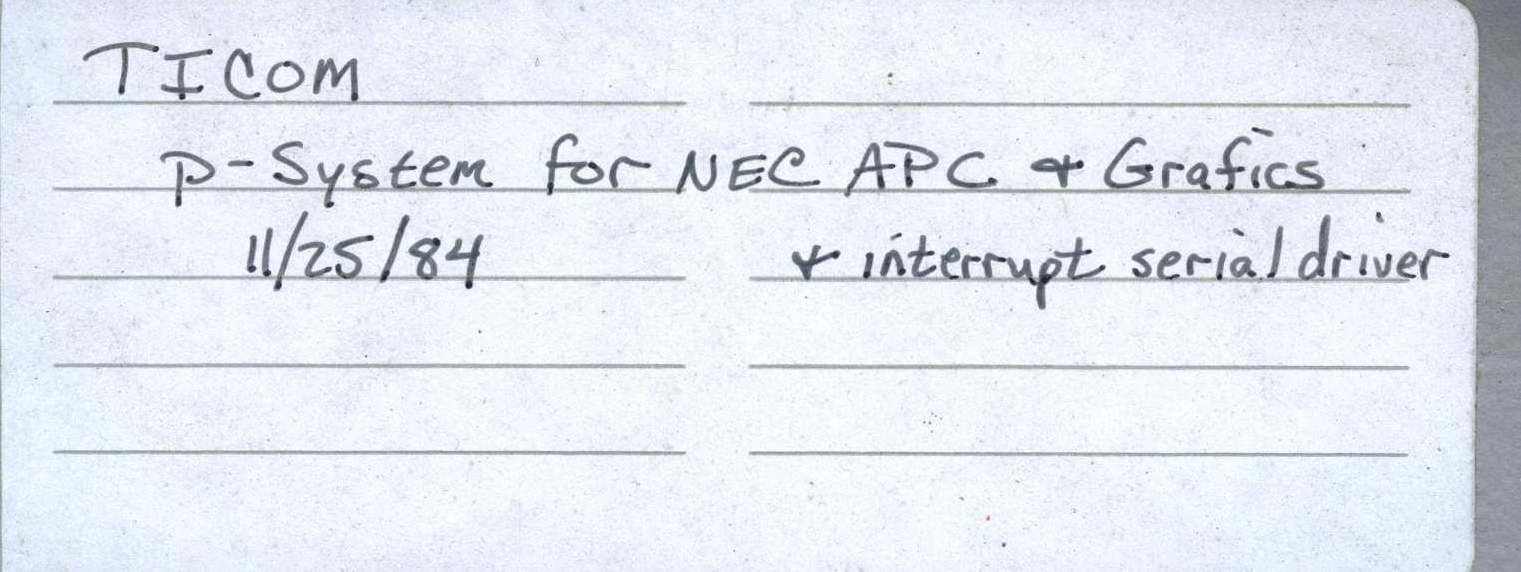 TICOM
p-System for NEC APC + Grafics
11/25/84 + interrupt serial driver